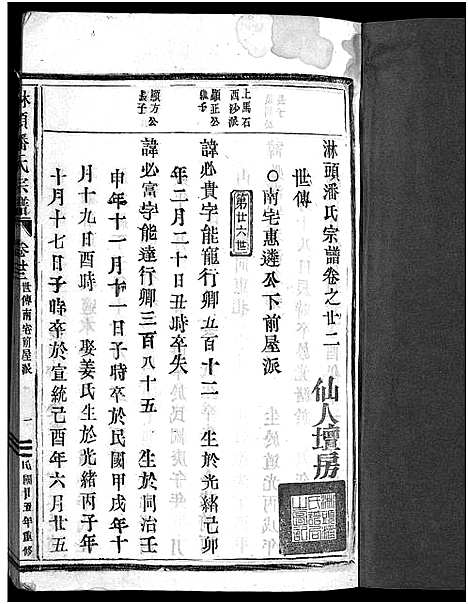 淋頭潘氏宗譜卷之廿二
仙人壇房
世傳
○南宅惠遴公下前屋派
第廿六世
上馬石
西沙派
顯正公
長子
諱必貴字能龍行卿五百十二 生於光緒己卯
年二月二十日丑時卒失
顯方公
長子
諱必富字能達行卿三百八十五 生於同治壬
申年十一月十一日子時卒於民國甲戌年十
月十九日酉時 娶姜氏生於光緒丙子年
十月十七日子時卒於宣統己酉年六月廿五
淋頭潘氏宗譜 卷廿二 世傳南宅前屋派 一 民國廿五年重修